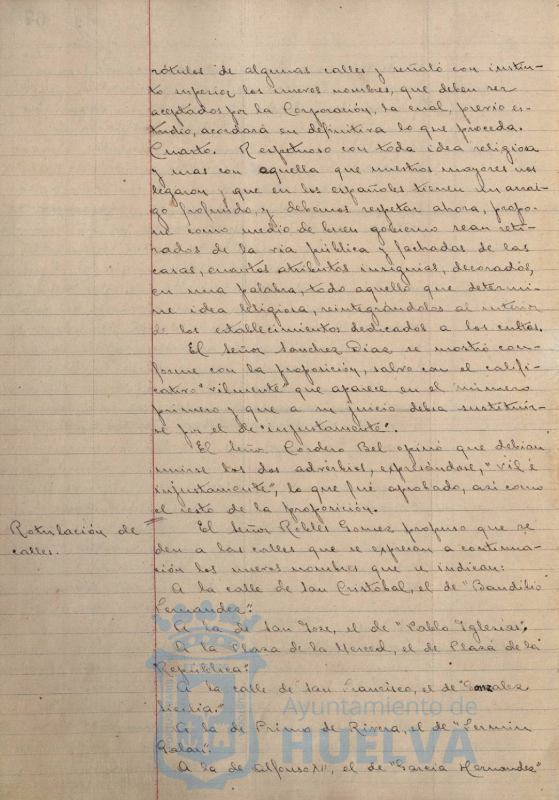 rótulos de algunas calles y señaló con instin-
to superior los nuevos nombres, que deben ser
aceptados por la Corporación, la cual, previo es-
tudio, acordará en definitiva lo que proceda.
Cuarto. Respetuoso con toda idea religiosa
y mas con aquella que nuestros mayores nos
legaron y que en los españoles tienen un arrai-
go profundo, y debemos respetar ahora, propo-
ne como medio de buen gobierno sean reti-
rados de la via pública y fachadas de las
casas, cuantos atributos insignias, decorados,
en una palabra, todo aquello que determi-
ne idea religiosa, reintegrándolos al interior
de los establecimientos dedicados a los cultos.
El Señor Sanchez Diaz se mostró con-
forme con la proposición, salvo con el califi-
cativo "vilmente" que aparece en el número
primero y que a su juicio debia sustituir-
se por el de "injustamente".
El Señor Cordero Bel opinó que debian
unirse los dos adverbios, expresándose, "vil é
injustamente", lo que fué aprobado, asi como
el resto de la proposición.
Rotulación de
calles.
El Señor Robles Gomez propuso que se
den a las calles que se expresan a continua-
ción los nuevos nombres que se indican:
A la calle de San Cristóbal, el de "Baudilio
Fernandez".
A la de San Jose, el de "Pablo Iglesias".
A la Plaza de la Merced, el de Plaza de la
República".
A la calle de San Francisco, el de "Gonzalez
Sicilia."
A la de Primo de Rivera, el de "Fermin
Galan".
A la de Alfonso XII, el de "Garcia Hernandez"
Ayuntamiento de
HUELVA